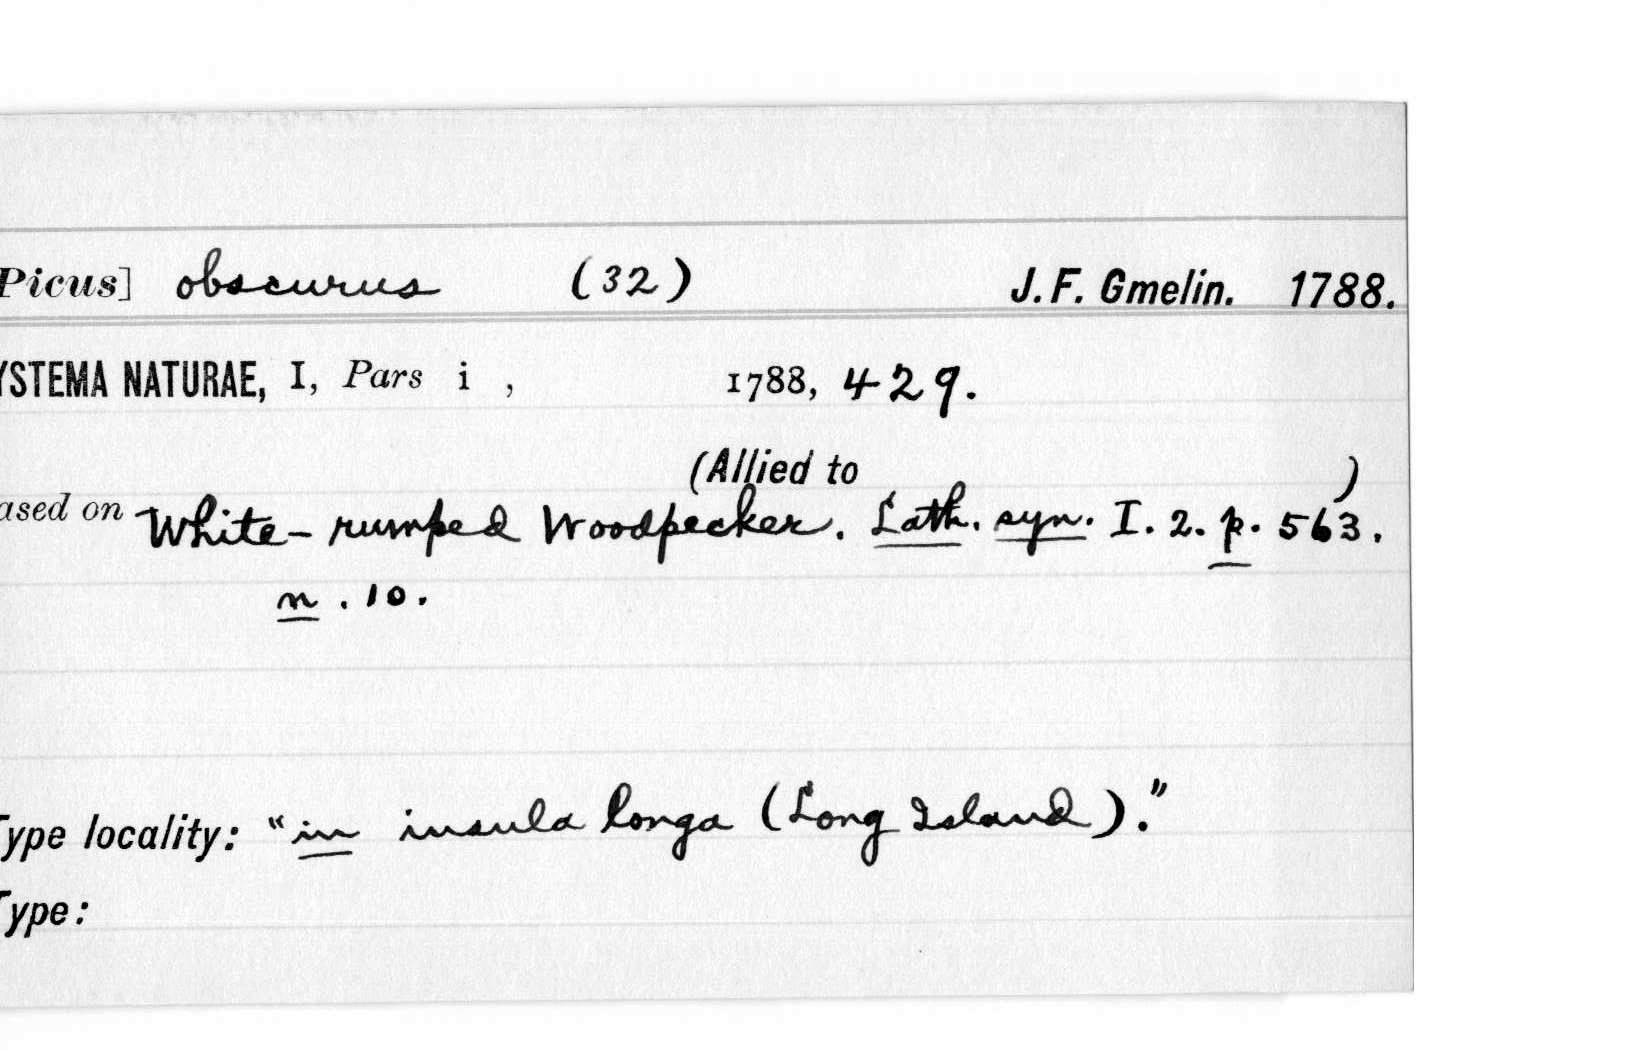 Picus] obscurus (32) J. F. Gmelin. 1788.
YSTEMA NATURAE, I, Pars i , 1788, 429.
(Allied to )
ased on White-rumped Woodpecker. Lath. syn. I. 2. p. 563.
n. 10.
Type locality: "in insula longa (Long Island)."
Type: